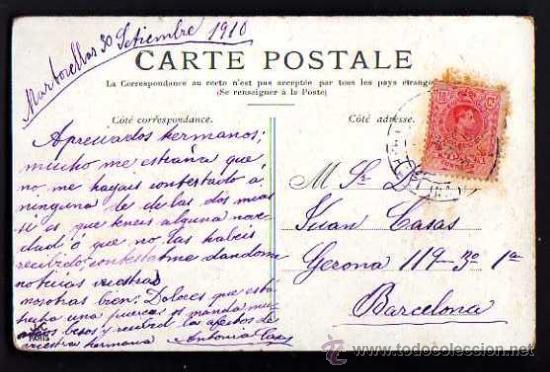 Martorellas 30 Setiembre 1910
CARTE POSTALE
La Correspondance au recto n'est pas acceptée par tous les pays étrangers
(Se renseigner à la Poste)
Côté correspondance.
Côté adresse.
Apreciados hermanos;
mucho me estraña que
no me hayais contestado á
ninguna de de las dos mias
si es que teneis alguna nove
dad ó que no las habeis
recibido; contestarme dandome
noticias vuestras
nosotras bien. Dolores que está
hecha una manda mu
chos besos y recibid los afectos de
vuestra hermana Antonia Casas
M Sr D.
Juan Casas
Gerona 119-3º 1ª
Barcelona
PARIS
todocoleccion.net